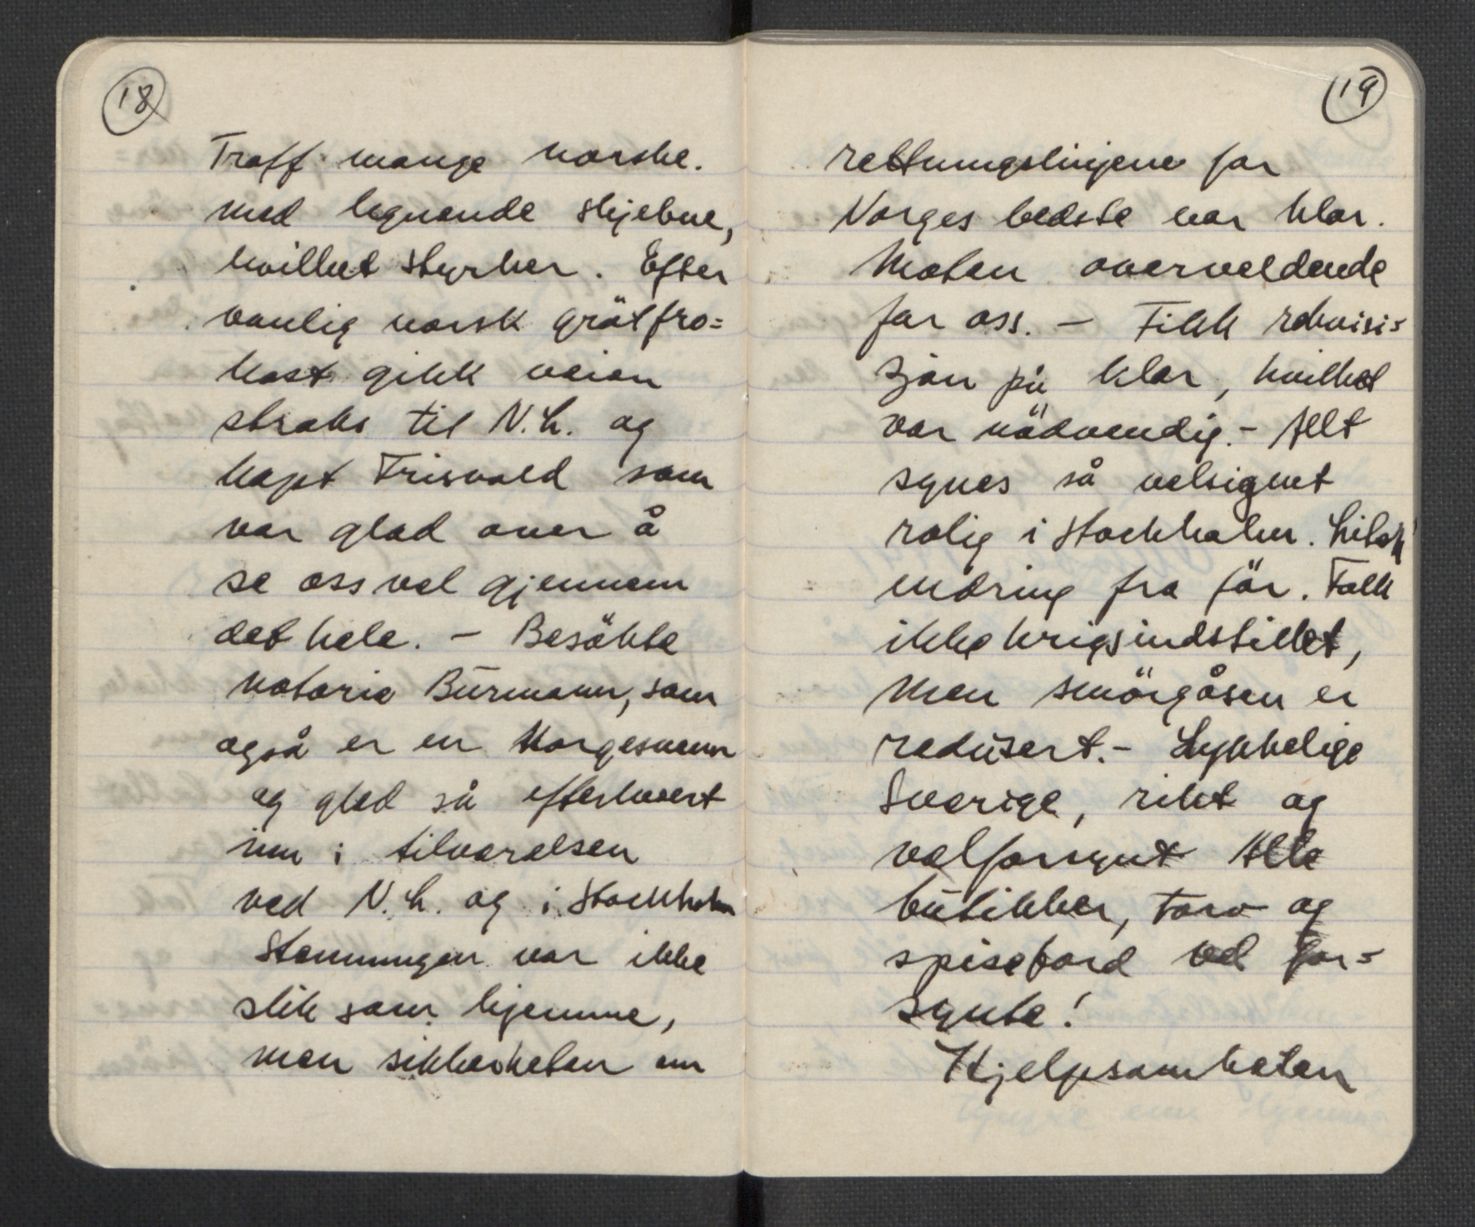 18
Traff mange norske.
med lignende skjebne,
hvilket styrker. Efter
vanlig norsk grötfro=
kost gikk veien
straks til N.L. og
kapt Frisvold som
var glad over å
se oss vel gjennem
det hele. – Besökte
notarie Bürmann, som
også er en Norgesvenn
og gled så efterhvert
inn i tilverelsen
ved N.L. og i Stockholm
Stemningen var ikke
slik som hjemme,
men sikkerheten om
19
rettningslinjene for
Norges bedste var klar.
Maten overveldende
for oss. – Fikk rekvisi=
sjon på klær, hvilket
var nödvendig. – Allt
synes så velsignet
rolig i Stockholm. Liten
endring fra för. Folk
ikke krigsindstillet,
men smörgåsen er
redüsert. – Lykkelige
Sverige, rikt og
velforsynt Alle
bütikker, torv og
spisebord vel for=
synte!
Hjelpsomheten